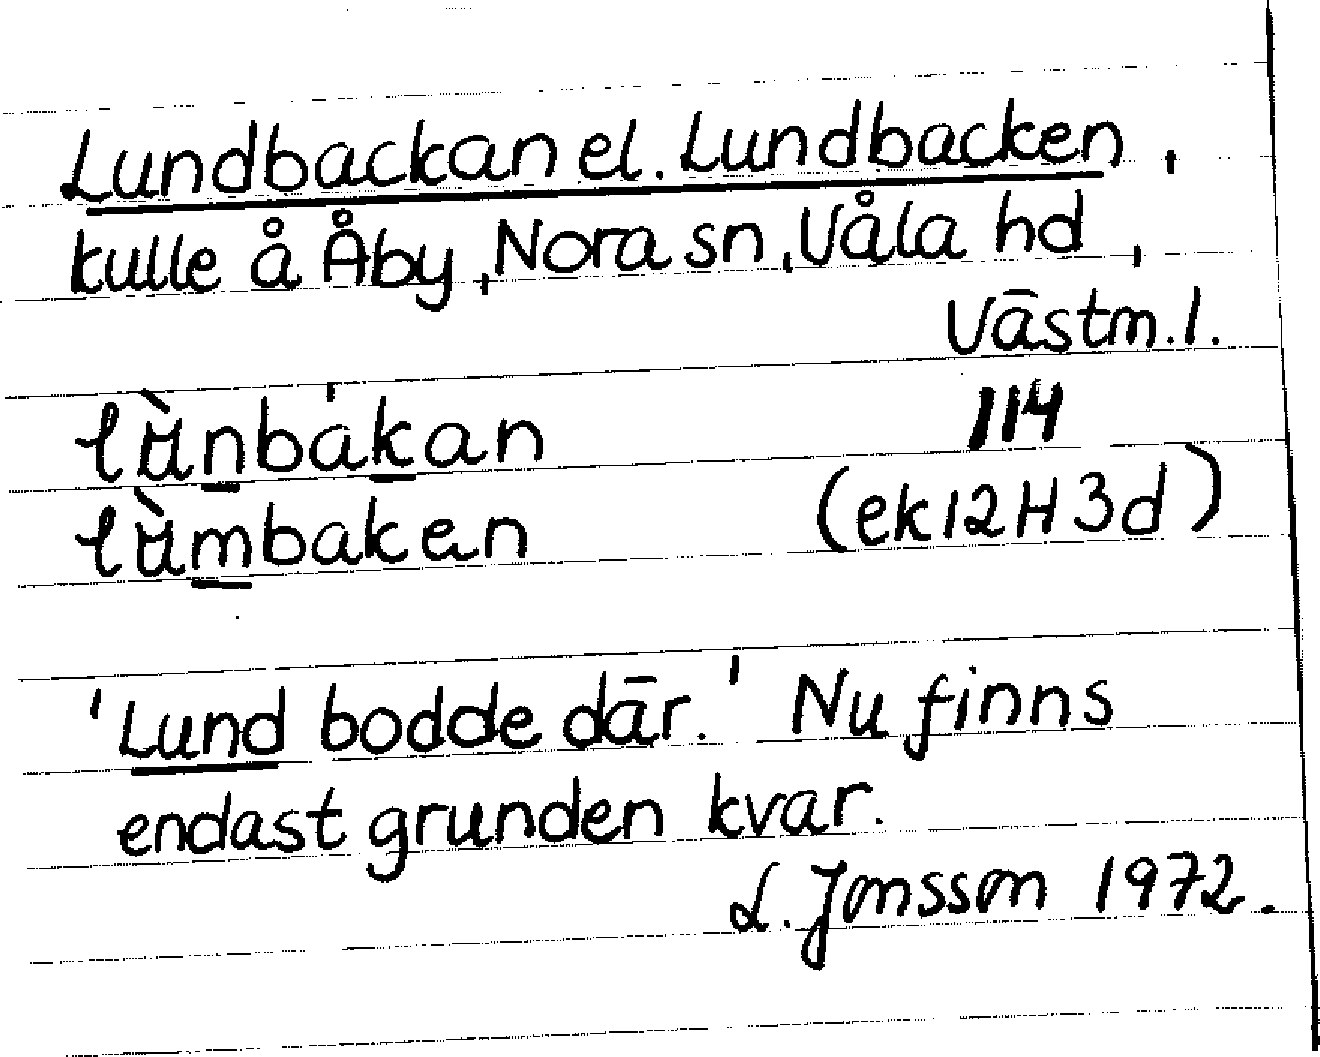 Lundbackan el. Lundbacken,
kulle å Åby, Nora sn, Våla hd,
Västm.l.
lùnbákan 114
lùmbaken (ek 12H3d)
'Lund bodde där.' Nu finns
endast grunden kvar.
L. Jonsson 1972.